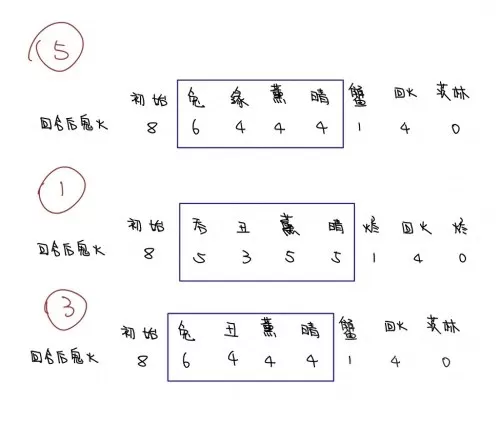 ⑤
初始 兔 缘 薰 晴 蟹 回火 实妹
回合后鬼火 8 6 4 4 4 1 4 0
①
初始 秀 丑 薰 晴 烬 回火 烬
回合后鬼火 8 5 3 5 5 1 4 0
③
初始 兔 丑 薰 晴 蟹 回火
回合后鬼火 8 6 4 4 4 1 4 0